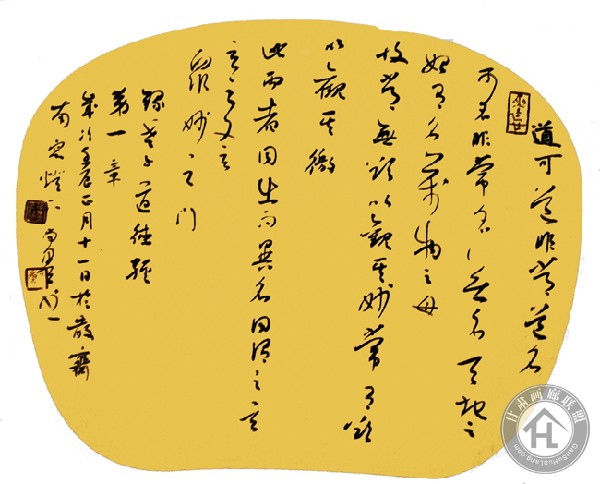 道可道非常道名
可名非常名无名天地之
始有名万物之母
故常無欲以觀其妙常有欲
以觀其徼
此兩者同出而異名同谓之玄
玄之又玄
眾妙之门
録老子道德經
第一章
歲次壬辰正月十一日於
甘肃画廊联盟
GanSuHuaLang.com